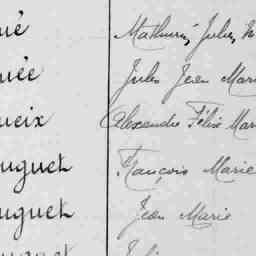 ué Mathurin, Jules, M
uée Jules Jean Mari
ueix Alexandre Félix Mar
uguet François Marie
uguet Jean Marie
uguet